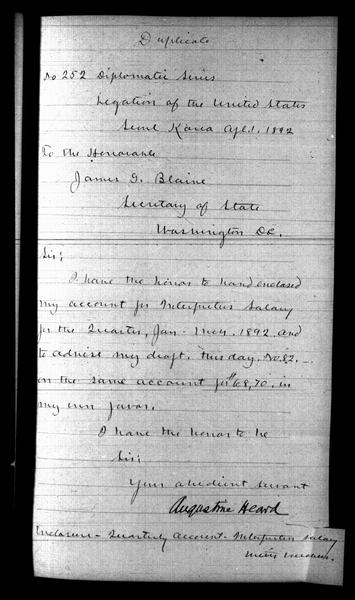 Duplicate
No 252 Diplomatic Series
Legation of the United States
Seoul Korea Apl. 1. 1892
To the Honorable
James G. Blaine
Secretary of State
Washington D.C.
Sir:
I have the honor to hand enclosed
my account for Interpreters Salary
for the Quarter, Jan - Mch. 1892 and
to advise my draft. this day. No. 82.
on the same account for $68,70. in
my own favor.
I have the honor to be
Sir:
Your obedient servant
Augustine Heard
Enclosure - Quarterly account - Interpreters Salary
with vouchers.